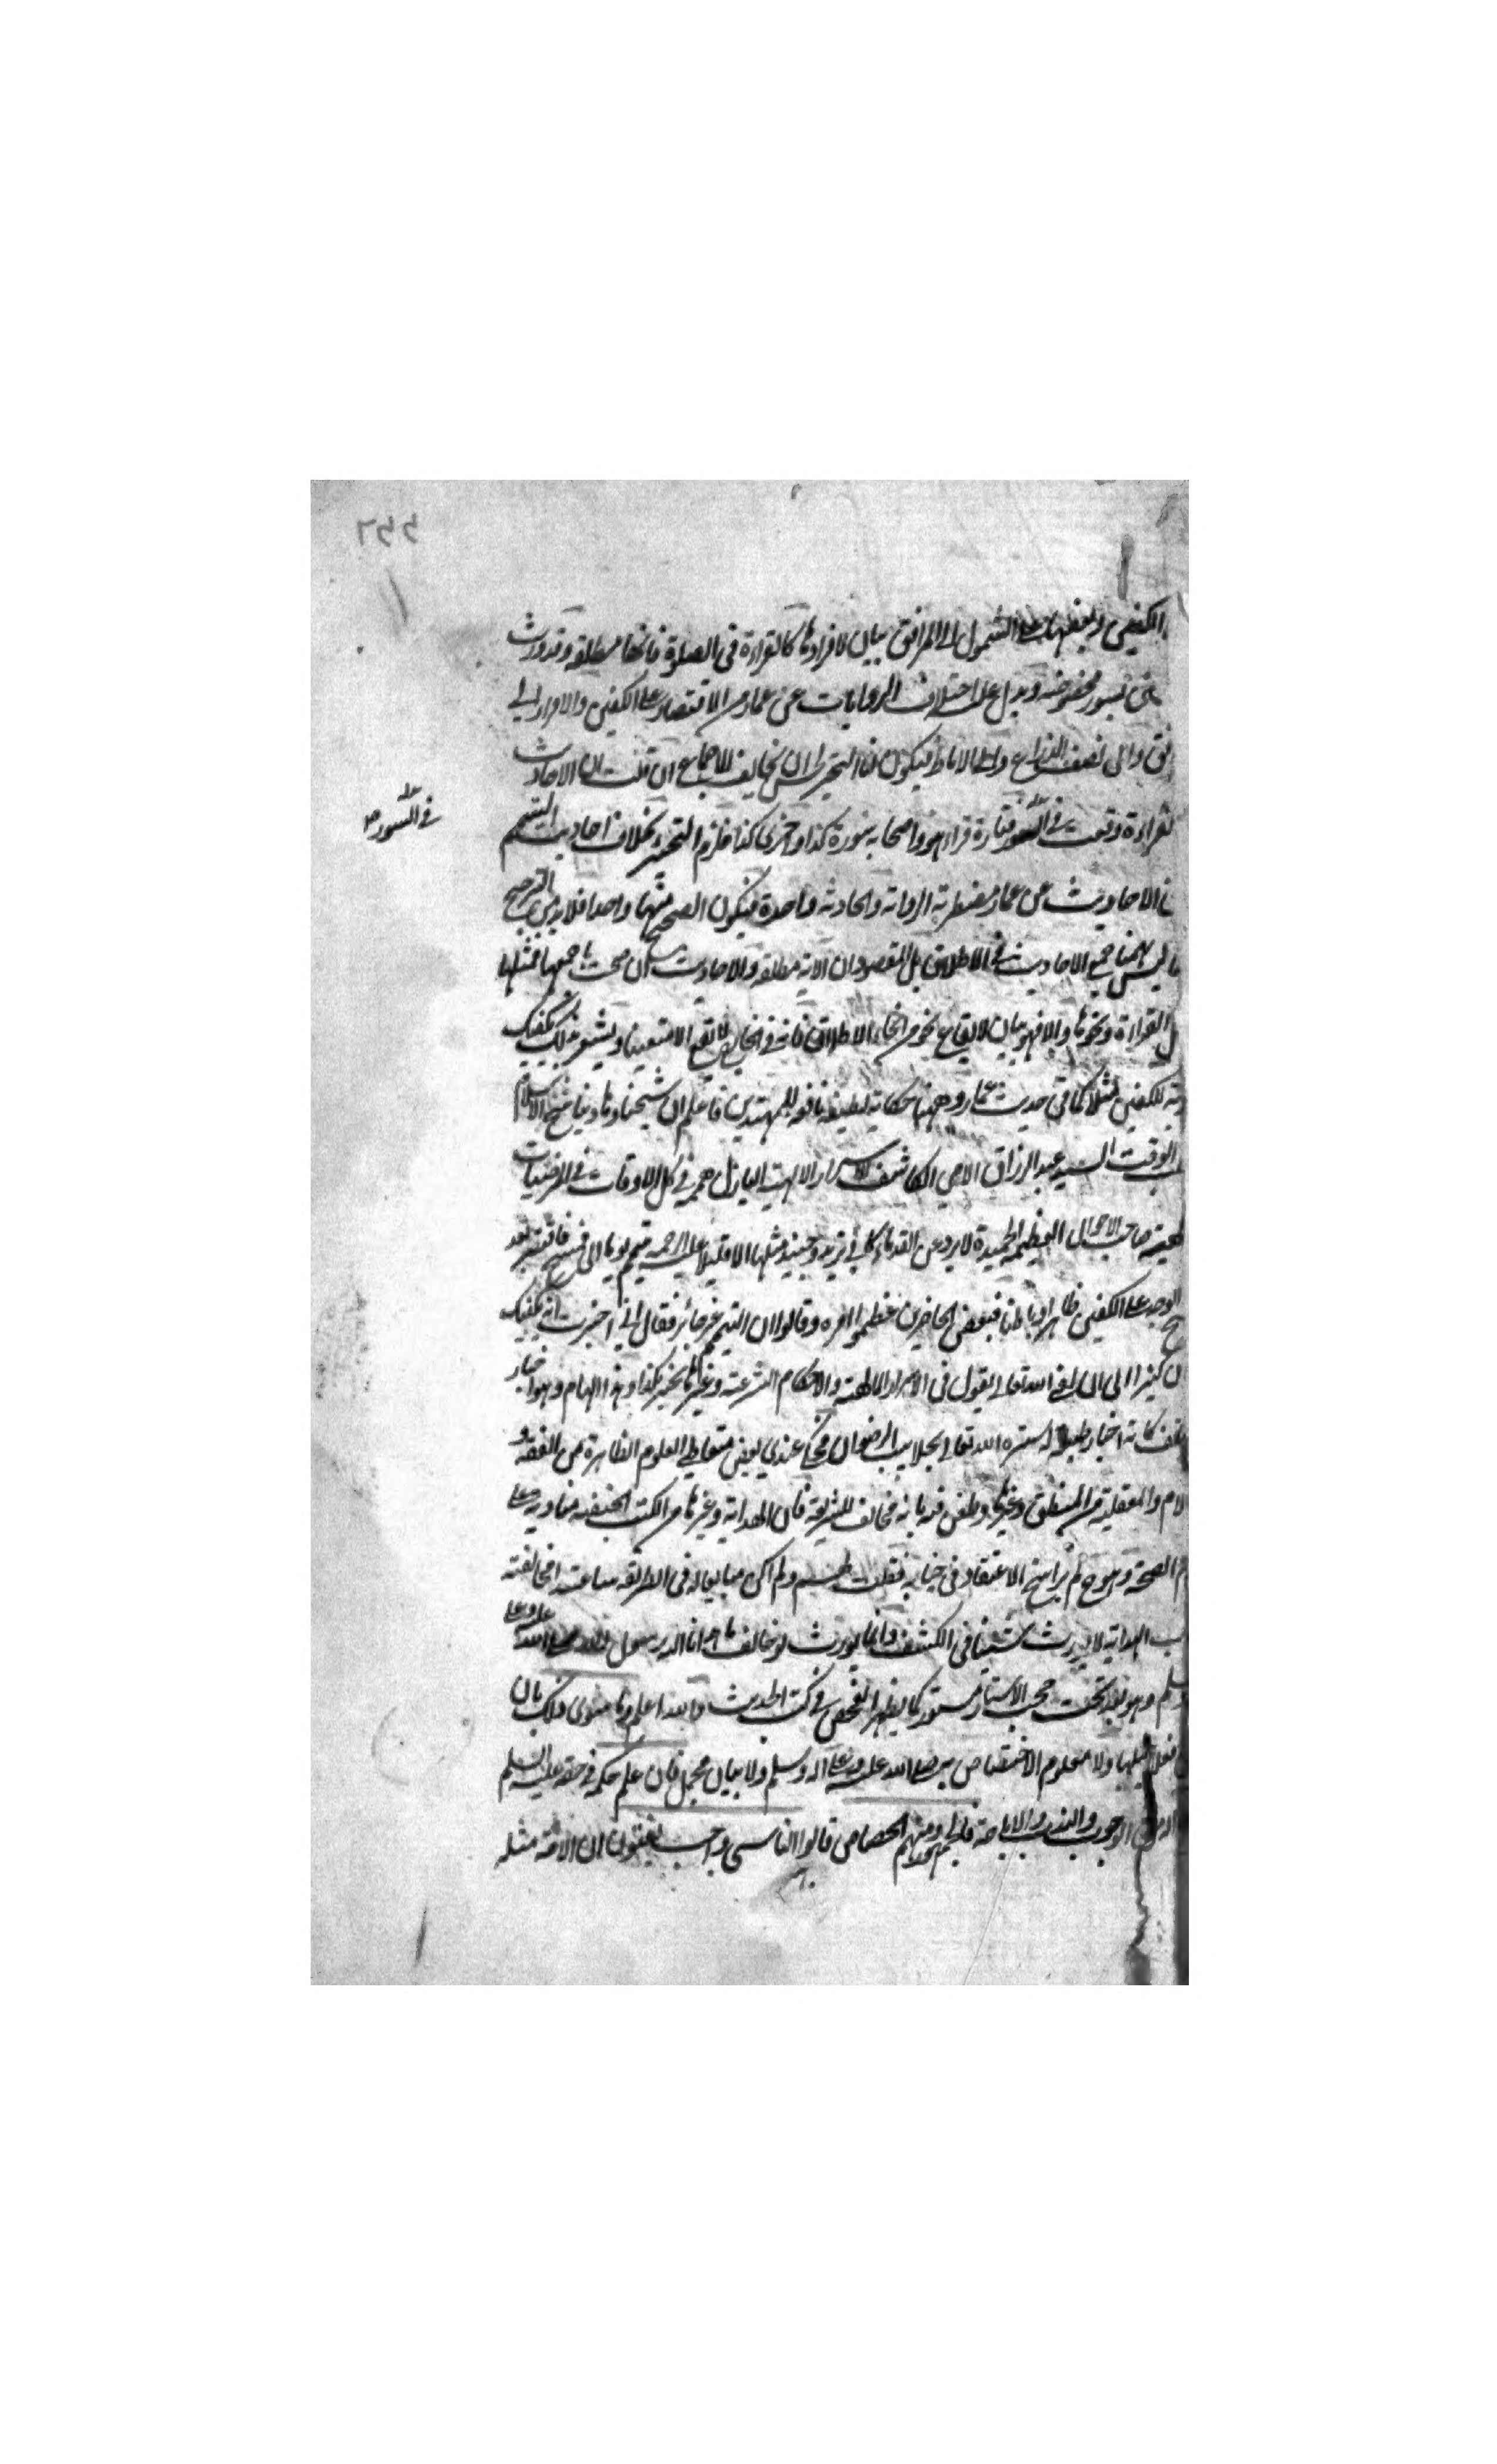 الكفين وبعضها على الشمول الى المرافق بيان لافرادها كالقراءة في الصلوة فانها مطلقة وقد ورث
بسور مخصوصة ويدل على اختلاف الروايات عن عمار من الاقتصار على الكفين والامر الى
فق والى نصف الذراع والى الاباط فيكون هذا التخيير ليس مخالف للاجماع ان قلت ان الاحاديث
لقراءة وقعت في السور فتارة قراء هو واصحابه بسورة كذا واخرى كذا فلزم التخيير بخلاف احاديث التيمم
في السور
ن الاحاديث عن عمار مضطربة الرواية والحادثة واحدة فيكون الصحيح منها واحدا فلا بد من الترجيح
ليس ههنا جميع الاحاديث في الاطلاق بل المقصود ان الاية مطلقة والاحاديث ان صحت باجمعها فمثلها
القراءة ونحوها والا فهو بيان لايقاع نحو من انحاء الاطلاق فانه في الخارج لا يقع الا متعينا ويشير ذلك يكفيك
للكفين مثلا كما في حديث عمار وههنا حكاية لطيفة نافعة للمهتدين فاعلم ان شيخنا وهادينا شيخ الاسلام
الوقت السيد عبد الرزاق الامي الكاشف الاسرار الالهية الباذل همه في كل الاوقات في المرضيات
صاحب الاحوال العظيمة الحميدة لا يرد عن القدماء كابي يزيد وجنيد مثلها الا قليلا عليه الرحمة تيمم يوما الى فاقتصر بعد
الوجه على الكفين ظاهرا وباطنا فبعض الحاضرين عظموا امره وقالوا ان التيمم غير جائز فقال اني اخبرت انه يكفيك
ن كثيرا الى الى الله تعالى يقول في الاسرار الالهية والاحكام الشرعية وغيرها يخبر بكذا وهذا الهام وهو اخبار
تف كانه اخبار ستره الله تعالى بجلابيب الرضوان فحكى عندي بعض متعاطي العلوم الظاهرة من الفقه و
لام والمعقلية من المنطق وغيرها وطعن فيه بانه مخالف للشريعة فان الهداية وغيرها من الكتب الحنفية منادية على
م الصحة وهو ح لم يراسخ الاعتقاد في جنابه فقلت ولم اكن مبايعا له في الطريقة ساعتئذ المخالفة
ب الهداية لا يورث شيئا في الكشف وانما يورث لو خالف ما اتانا الله برسول الله صلى الله عليه وعلى
وسلم وهو بعد تحت حجب الاستار مستور كما يظهر بالفحص في كتب الحديث والله اعلم وما سوى ذلك بان
فعلا جبليا ولا معلوم الاختصاص به صلى الله عليه وعلى اله وسلم ولا بيان مجمل فان علم حكمه في حقه عليه السلم
الوجوب والندب والاباحة فالجمهور ومنهم الجصاص قالوا التاسي واجب يعنون ان الامة مثله